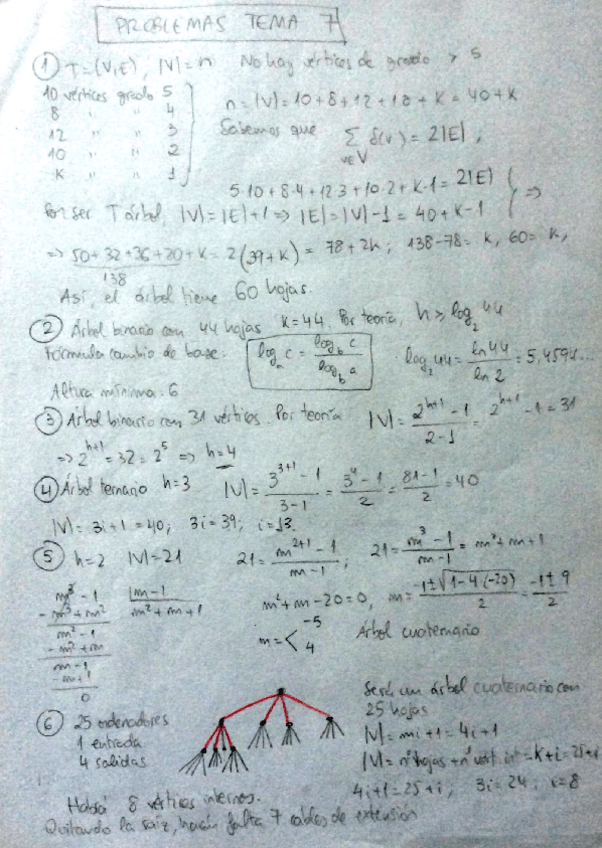 PROBLEMAS TEMA 7
① T=(V,E), |V|=n No hay vértices de grado > 5
10 vértices grado 5
8 " " 4
12 " " 3
10 " " 2
K " " 1
n=|V|=10+8+12+10+K=40+K
Sabemos que ∑ δ(v) = 2|E|,
v∈V
5·10+8·4+12·3+10·2+K·1=2|E|
Por ser T árbol, |V|=|E|+1 ⇒ |E|=|V|-1=40+K-1 ⇒
⇒ 50+32+36+20+K=2(39+K)=78+2K; 138-78=K, 60=K,
138
Así, el árbol tiene 60 hojas.
② Árbol binario con 44 hojas K=44. Por teoría, h ≥ log₂ 44
Fórmula cambio de base: logₐ c = log_b c / log_b a log₂ 44 = ln 44 / ln 2 = 5,4594...
Altura mínima: 6
③ Árbol binario con 31 vértices. Por teoría |V| = (2^(h+1) - 1)/(2-1) = 2^(h+1) - 1 = 31
⇒ 2^(h+1) = 32 = 2^5 ⇒ h=4
④ Árbol ternario h=3 |V| = (3^(3+1) - 1)/(3-1) = (3^4 - 1)/2 = (81-1)/2 = 40
|V| = 3i+1 = 40; 3i=39; i=13.
⑤ h=2 |V|=21 21 = (m^(2+1) - 1)/(m-1); 21 = (m³ - 1)/(m-1) = m²+m+1
m³ - 1 |m-1
-m³+m² m²+m+1
m²-1
-m²+m
m-1
-m+1
0
m²+m-20=0, m = (-1±√(1-4(-20)))/2 = (-1±9)/2
m = < -5
4
Árbol cuaternario
⑥ 25 ordenadores
1 entrada
4 salidas
Será un árbol cuaternario con
25 hojas
|V|=mi+1=4i+1
|V|=nº hojas+nº vért. int=K+i=25+i
4i+1=25+i; 3i=24; i=8
Habrá 8 vértices internos.
Quitando la raíz, harán falta 7 cables de extensión